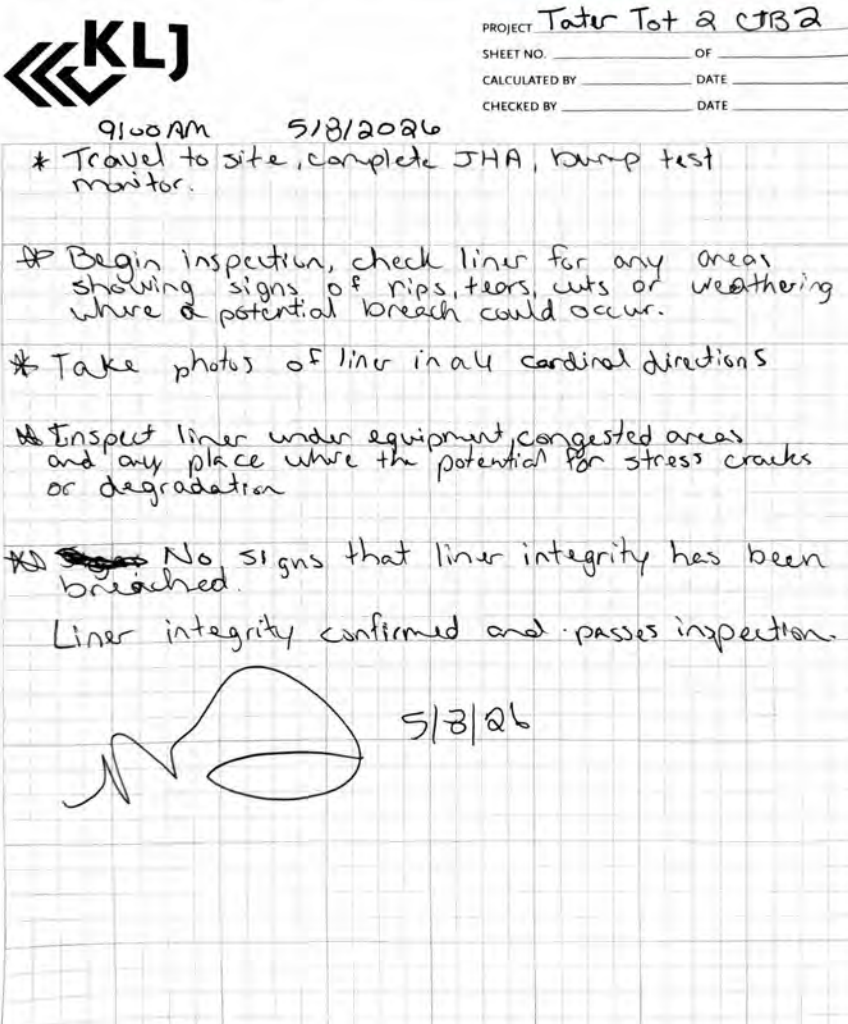 KLJ
PROJECT Tater Tot 2 CTB 2
SHEET NO. OF
CALCULATED BY DATE
CHECKED BY DATE
9:00 AM 5/8/2026
* Travel to site, complete JHA, bump test
monitor.
* Begin inspection, check liner for any areas
showing signs of rips, tears, cuts or weathering
where a potential breach could occur.
* Take photos of liner in all cardinal directions
* Inspect liner under equipment, congested areas
and any place where the potential for stress cracks
or degradation
* No signs that liner integrity has been
breached.
Liner integrity confirmed and passes inspection.
5/8/26